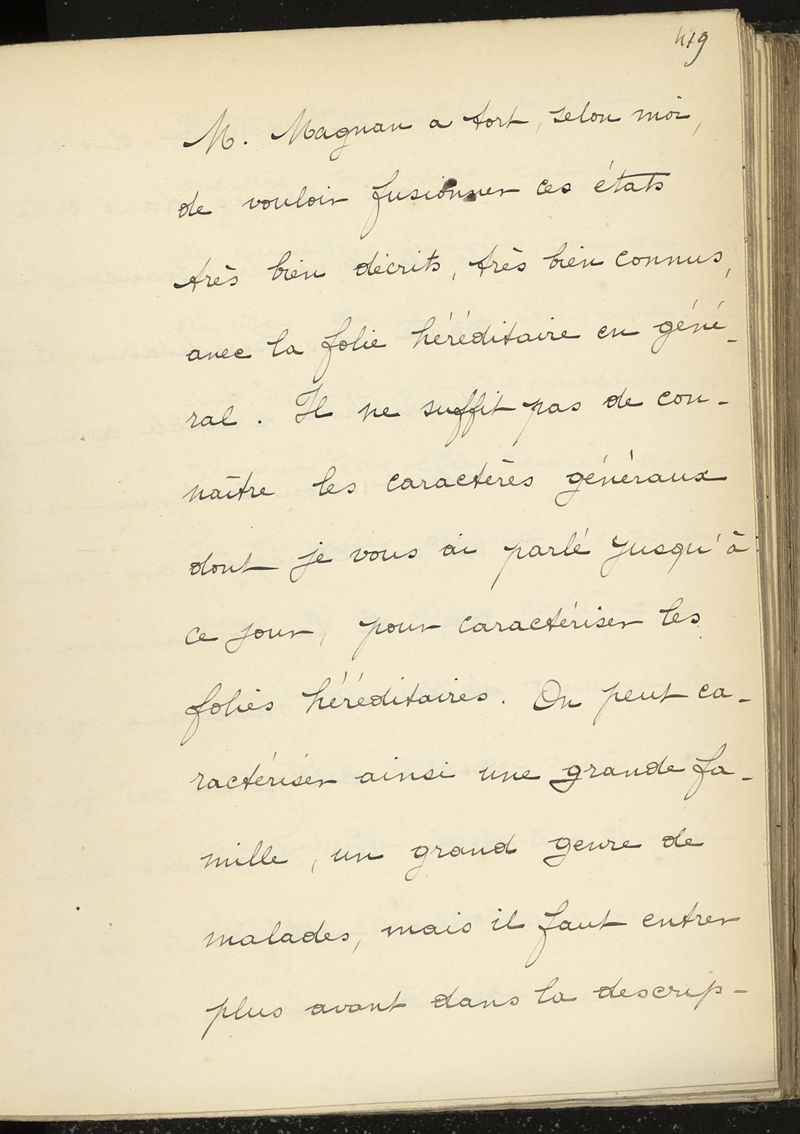 479
M. Magnan a tort, selon moi,
de vouloir fusionner ces états
très bien décrits, très bien connus,
avec la folie héréditaire en géné-
ral. Il ne suffit pas de con-
naître les caractères généraux
dont je vous ai parlé jusqu'à
ce jour, pour caractériser les
folies héréditaires. On peut ca-
ractériser ainsi une grande fa-
mille, un grand genre de
malades, mais il faut entrer
plus avant dans la descrip-